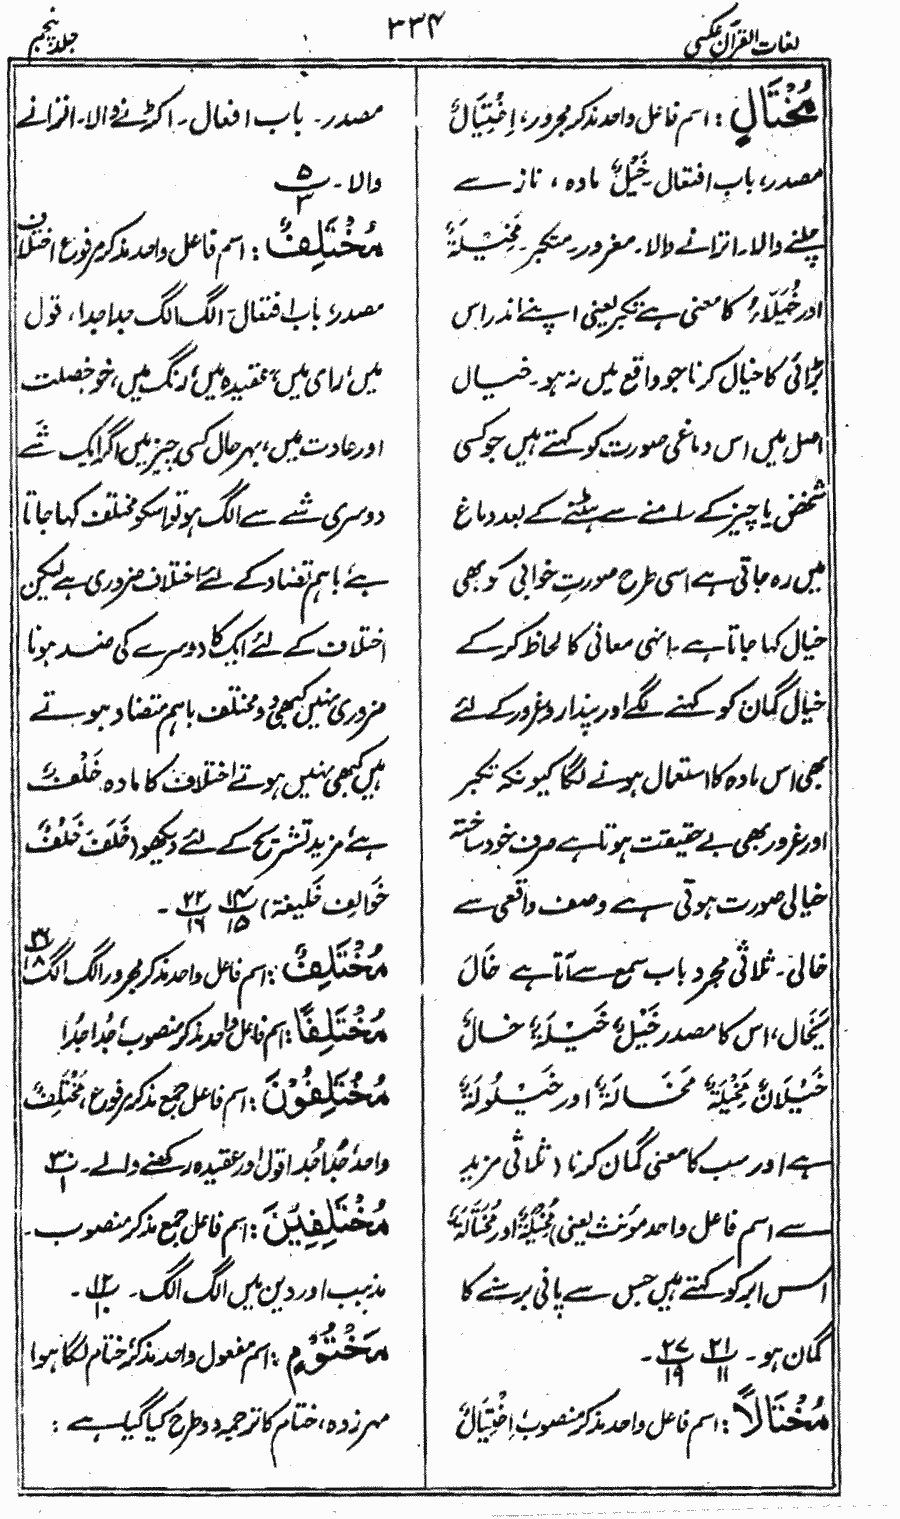 لغات القرآن عکسی
۳۳۴
جلد پنجم
مُخْتَالٍ: اسم فاعل واحد مذکر مجرور، اِخْتِیَالٌ
مصدر، باب افتعال۔ خَیْلٌ مادہ، ناز سے
چلنے والا۔ اترانے والا۔ مغرور۔ متکبر۔ مَخِیْلَۃٌ
اور خُیَلَاءُ کا معنی ہے تکبر یعنی اپنے اندر اس
بڑائی کا خیال کرنا جو واقع میں نہ ہو۔ خیال
اصل میں اس دماغی صورت کو کہتے ہیں جو کسی
شخص یا چیز کے سامنے سے ہٹنے کے بعد دماغ
میں رہ جاتی ہے اسی طرح صورتِ خوابی کو بھی
خیال کہا جاتا ہے۔ انہی معانی کا لحاظ کر کے
خیال گمان کو کہنے لگے اور پندار و غرور کے لئے
بھی اس مادہ کا استعمال ہونے لگا کیونکہ تکبر
اور غرور بھی بے حقیقت ہوتا ہے صرف خود ساختہ
خیالی صورت ہوتی ہے وصف واقعی سے
خالی۔ ثلاثی مجرد باب سمع سے آتا ہے خَالَ
یَخَالُ، اس کا مصدر خَیْلٌ خَیْلَۃٌ خَالٌ
خَیْلَانٌ مَخِیْلَۃٌ مَخَالَۃٌ اور خَیْلُولَۃٌ
ہے اور سب کا معنی گمان کرنا (ثلاثی مزید
سے اسم فاعل واحد مونث یعنی) مُخِیْلَۃٌ اور مُخْتَالَۃٌ
اس ابر کو کہتے ہیں جس سے پانی برسنے کا
گمان ہو۔ ۲۱/۱۱ ۲۷/۱۹۔
مُخْتَالًا: اسم فاعل واحد مذکر منصوب اِخْتِیَالٌ
مصدر۔ باب افتعال۔ اکڑنے والا۔ اترانے
والا۔ ۵/۳
مُخْتَلِفٌ: اسم فاعل واحد مذکر مرفوع اختلاف
مصدر، باب افتعال۔ الگ الگ جدا جدا، قول
میں، رای میں، عقیدہ میں، رنگ میں، خو خصلت
اور عادت میں، بہر حال کسی چیز میں اگر ایک شے
دوسری شے سے الگ ہو تو اسکو مختلف کہا جاتا
ہے، باہم تضاد کے لئے اختلاف ضروری ہے لیکن
اختلاف کے لئے ایک کا دوسرے کی ضد ہونا
ضروری نہیں کبھی دو مختلف باہم متضاد ہوتے
ہیں کبھی نہیں ہوتے اختلاف کا مادہ خَلْفٌ
ہے، مزید تشریح کے لئے دیکھو (خَلَفَ خَلْفٌ
خَوَالِف خَلِیفَۃ) ۱۴/۱۵ ۲۲/۱۶۔
مُخْتَلِفٍ: اسم فاعل واحد مذکر مجرور الگ الگ
مُخْتَلِفًا: اسم فاعل واحد مذکر منصوب، جُدا جُدا
مُخْتَلِفُوْنَ: اسم فاعل جمع مذکر مرفوع، مُخْتَلِفٌ
واحد، جُدا جُدا قول اور عقیدہ رکھنے والے۔ ۳۰/۱
مُخْتَلِفِیْنَ: اسم فاعل جمع مذکر منصوب۔
مذہب اور دین میں الگ الگ۔ ۱۲/۱۰۔
مَخْتُوْمٍ: اسم مفعول واحد مذکر، ختام لگا ہوا
مہر زدہ، ختام کا ترجمہ دو طرح کیا گیا ہے :